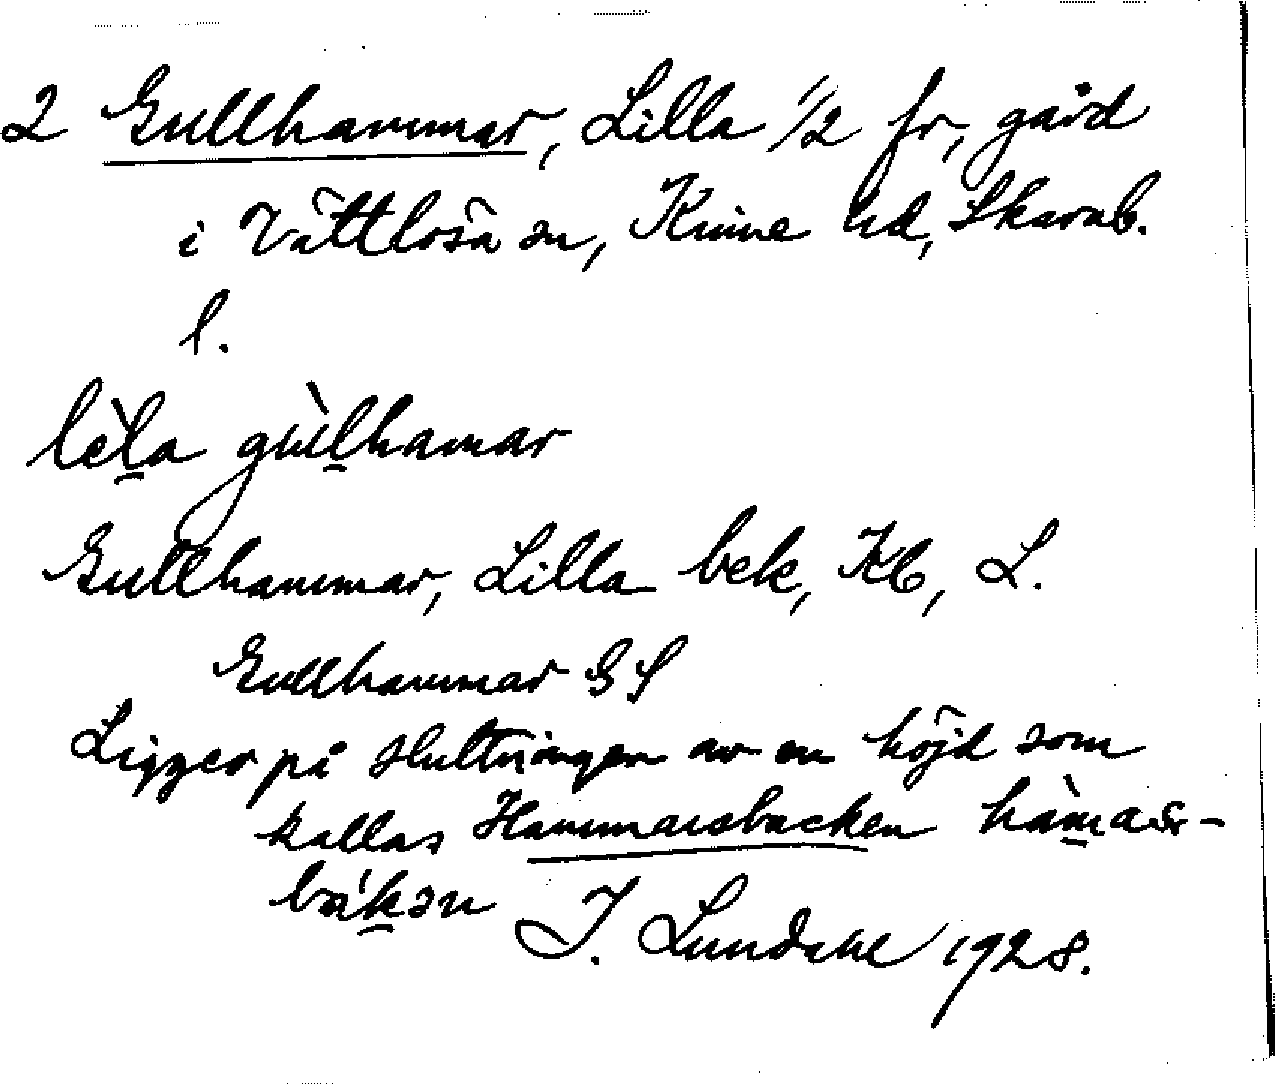 2 Gullhammar, Lilla 1/2 fr, gård
i Vättlösa sn, Kinne hd, Skarab.
l.
lèla gùlhamar
Gullhammar, Lilla bek, Kb, L.
Gullhammar GS
Ligger på sluttningen av en höjd som
kallas Hammarsbacken hàmas-
bákən J. Lundahl 1928.